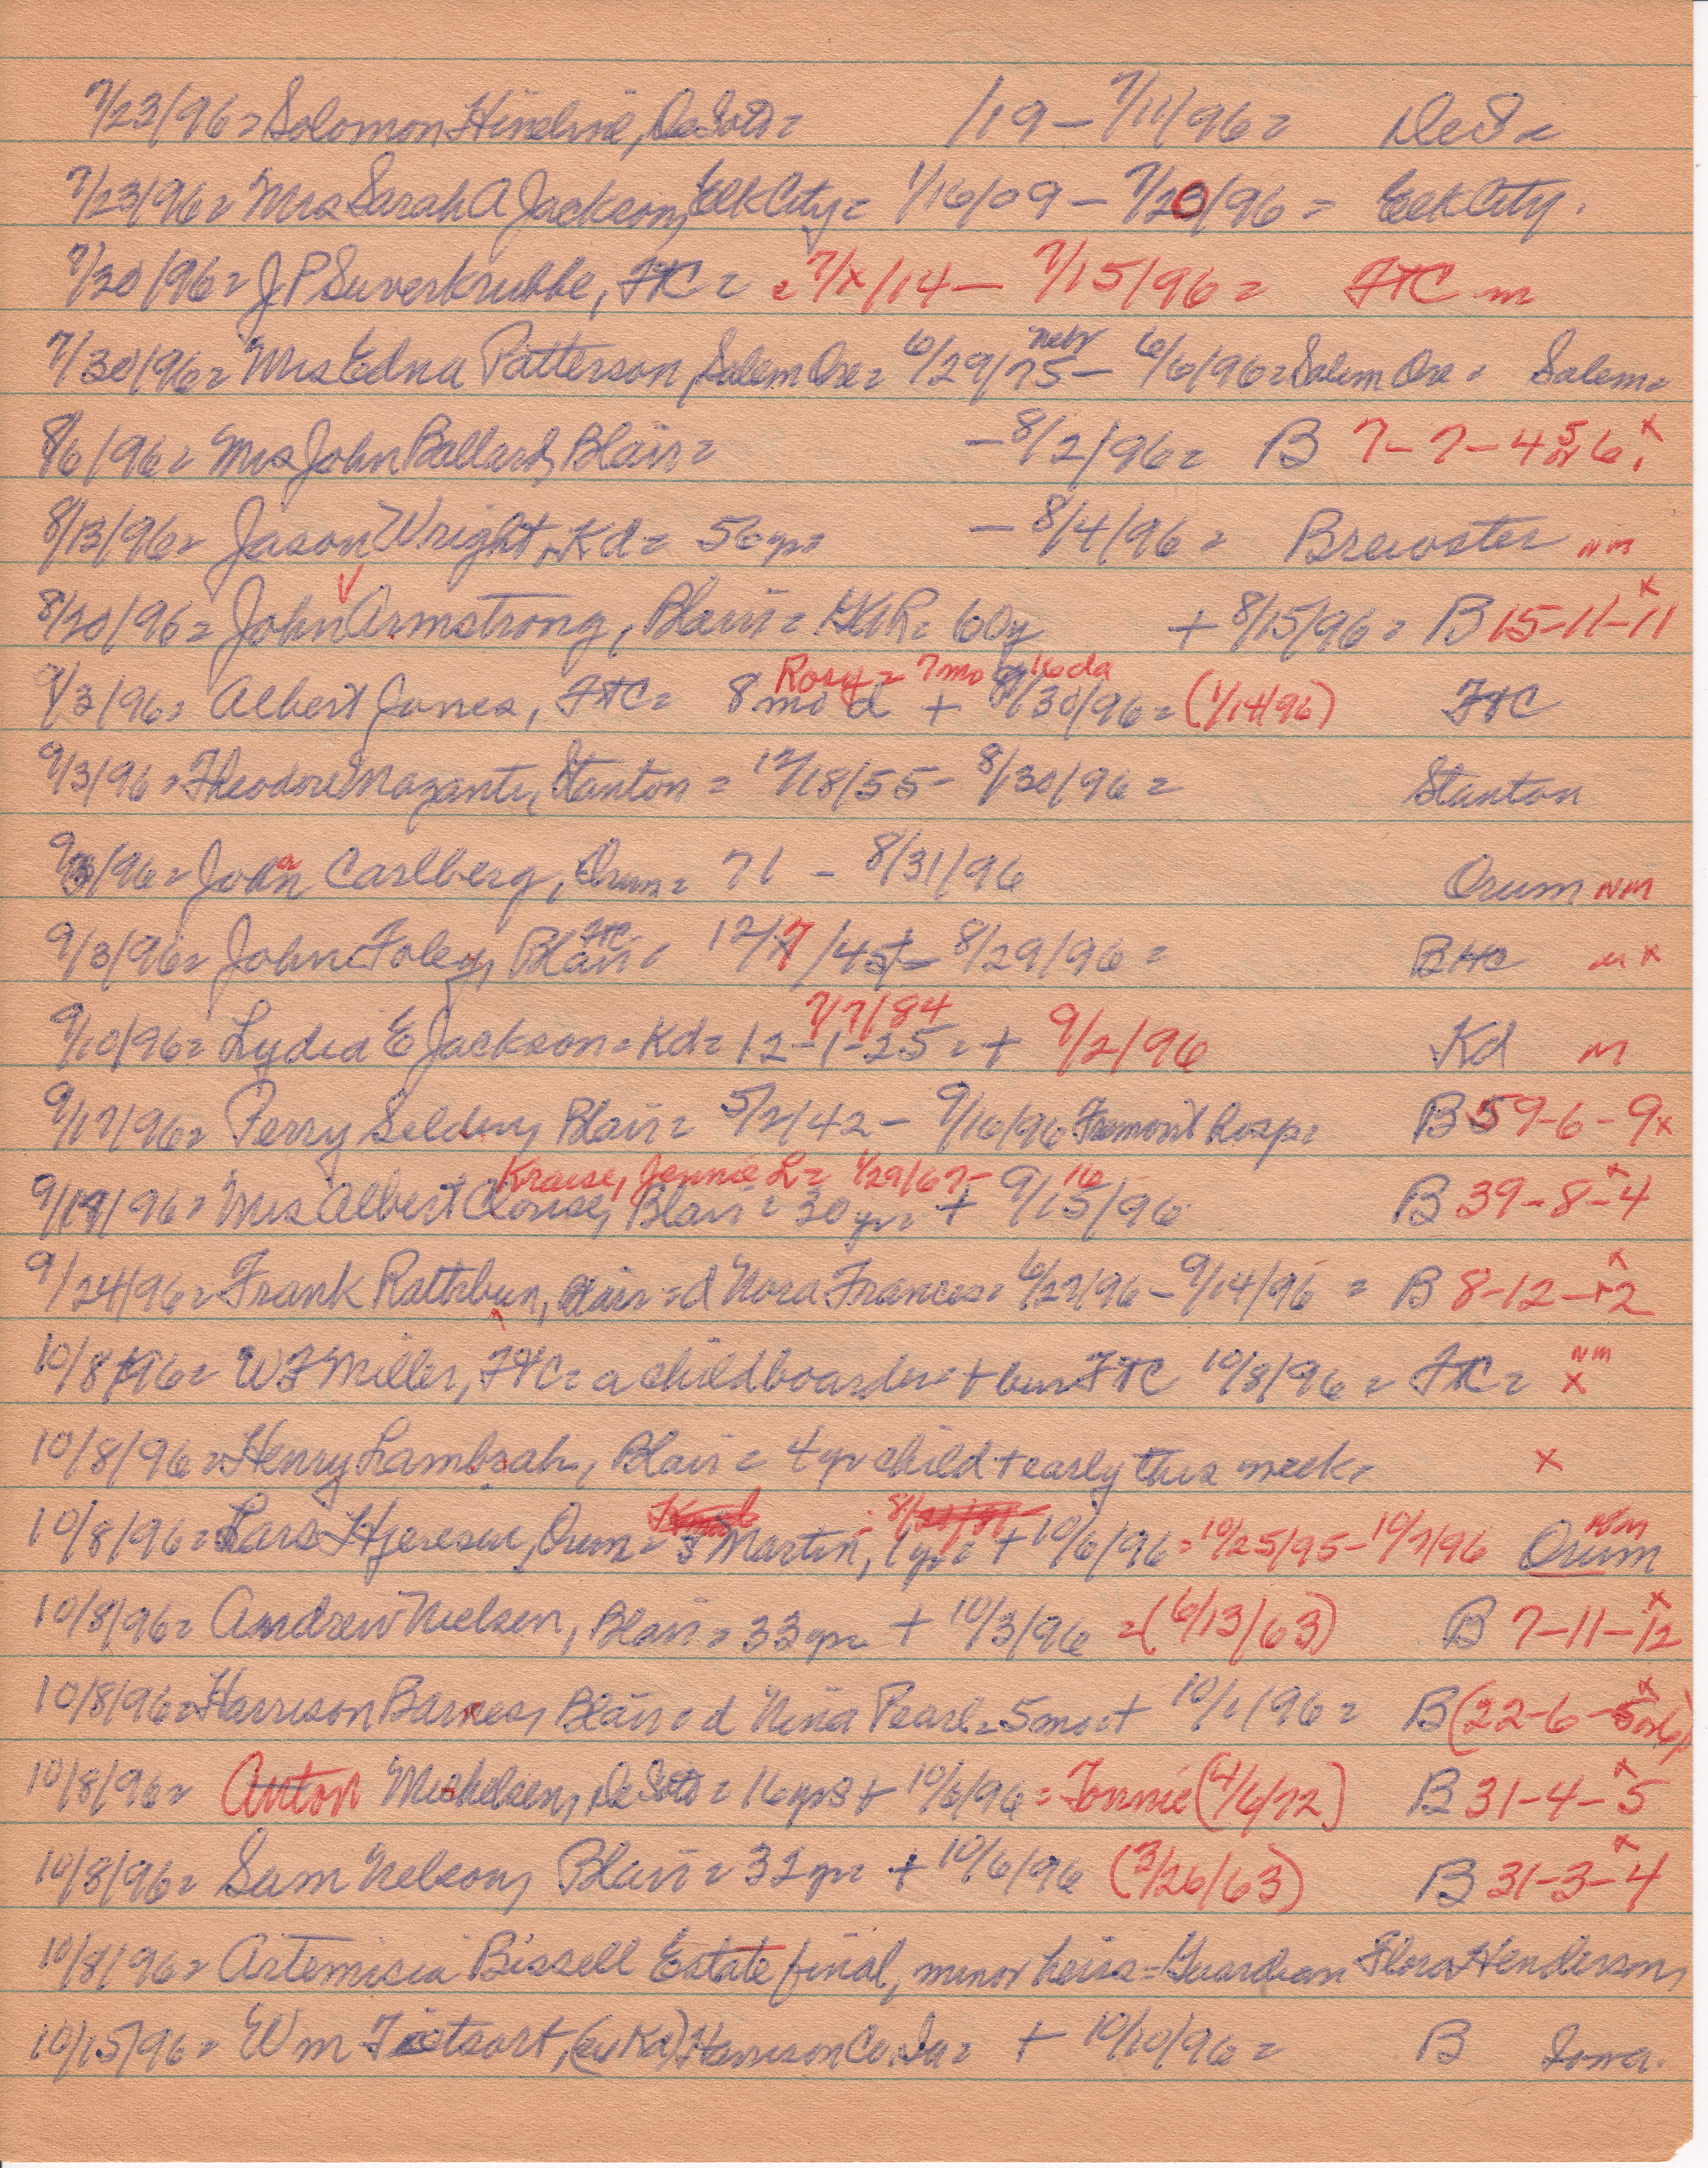 7/23/96 = Solomon Hineline, DeSoto = /19 – 7/11/96 = DeS =
7/23/96 = Mrs Sarah A Jackson, Elk City = 1/16/09 – 7/20/96 = Elk City.
7/30/96 = J P Suverkrubbe, FtC = 7/x/14 – 7/15/96 = FtC m
7/30/96 = Mrs Edna Patterson, Salem Ore = 6/29/75 Nebr – 6/6/96 = Salem Ore = Salem =
8/6/96 = Mrs John Ballard, Blair = – 8/2/96 = B 7-7-4 5 or 6 x
8/13/96 = Jason Wright, Kd = 56 yr = – 8/4/96 = Brewster NM
8/20/96 = John Armstrong, Blair = GAR = 60y + 8/15/96 = B 15-11-11 x
Rosy = 7mo 16da
9/3/96 = Albert Jones, FtC = 8 mo d + 8/30/96 = (1/14/96) FtC
9/3/96 = Theodore Mazanti, Stanton = 12/18/55 – 8/30/96 = Stanton
9/3/96 = John Carlberg, Orum = 71 – 8/31/96 Orum NM
9/3/96 = John Foley, Blair FtC = 12/7/45 – 8/29/96 = m x
7/7/84
9/10/96 = Lydia E Jackson = Kd = 12-1-25 = + 9/2/96 Kd m
9/17/96 = Perry Selden, Blair = 5/2/42 – 9/16/96 Fremont Hosp = B 59-6-9 x
Krause, Jennie L = 1/29/67 – 16
9/17/96 = Mrs Albert Clouse, Blair = 30 yr = + 9/15/96 B 39-8-4 x
9/24/96 = Frank Rathbun, Blair = d Nora Frances = 6/27/96 – 9/14/96 = B 8-12-2 x
10/8/96 = W F Miller, FtC = a child boarder = + bur FtC 10/8/96 = FtC = NM x
10/8/96 = Henry Lambrah, Blair = 4 yr child + early this week = x
10/8/96 = Lars Hjeresen, Orum = s Martin, 1 yr = + 10/6/96 = 10/25/95 – 10/7/96 Orum NM
10/8/96 = Andrew Nielsen, Blair = 33 yr = + 10/3/96 = (6/13/63) B 7-11-12 x
10/8/96 = Harrison Barnes, Blair = d Nina Pearl = 5 mo = + 10/1/96 = B (22-6-5 or 6) x
10/8/96 = Anton Mickelsen, DeSoto = 16 yrs + 10/6/96 = Tonnie (4/6/72) B 31-4-5 x
10/8/96 = Sam Nelson, Blair = 32 yr = + 10/6/96 (3/26/63) B 31-3-4 x
10/8/96 = Artemicia Bissell Estate final, minor heirs = Guardian Flora Henderson,
10/15/96 = Wm Tietsort, (ex Kd) Harrison Co. Ia = + 10/10/96 = B Iowa.